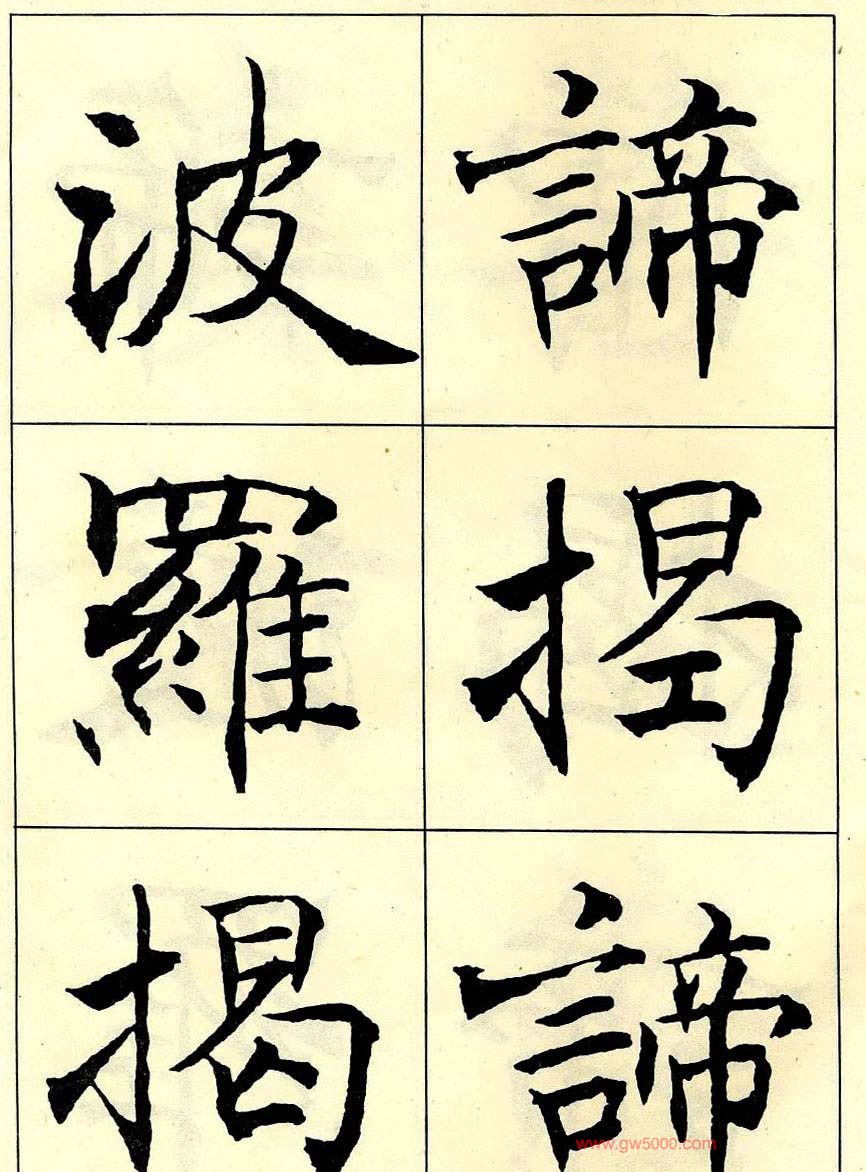 諦揭諦
波羅揭
www.gw5000.com